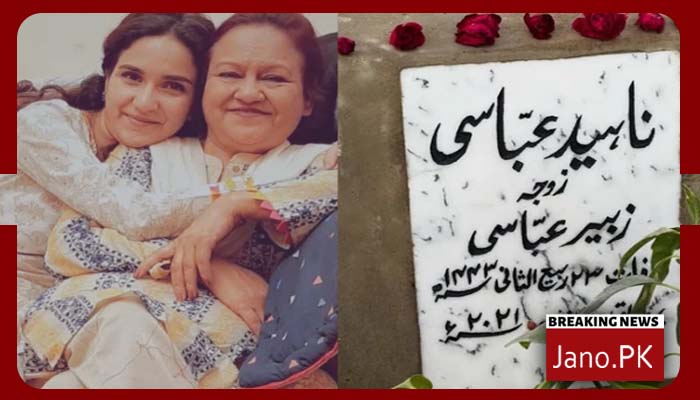 ناہید عبّاسی
زوجہ
زبیر عبّاسی
۲۳ ربیع الثانی ۱۴۴۳ھ
۲۰۲۱ء
BREAKING NEWS
Jano.PK